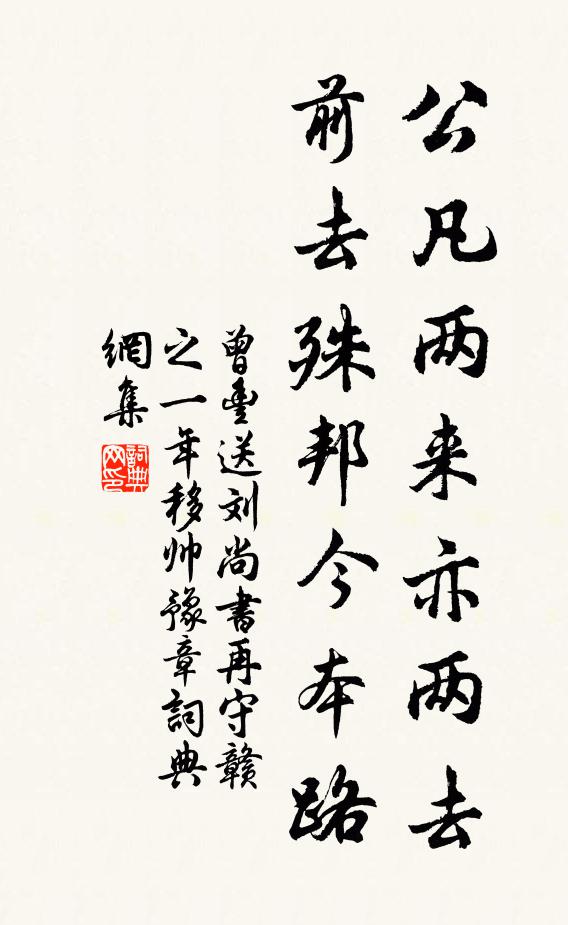 公凡两来亦两去
前去殊邦今本路
曾豊送刘尚書再守贛
之一年移帅豫章詞典
網集
詞典
网印